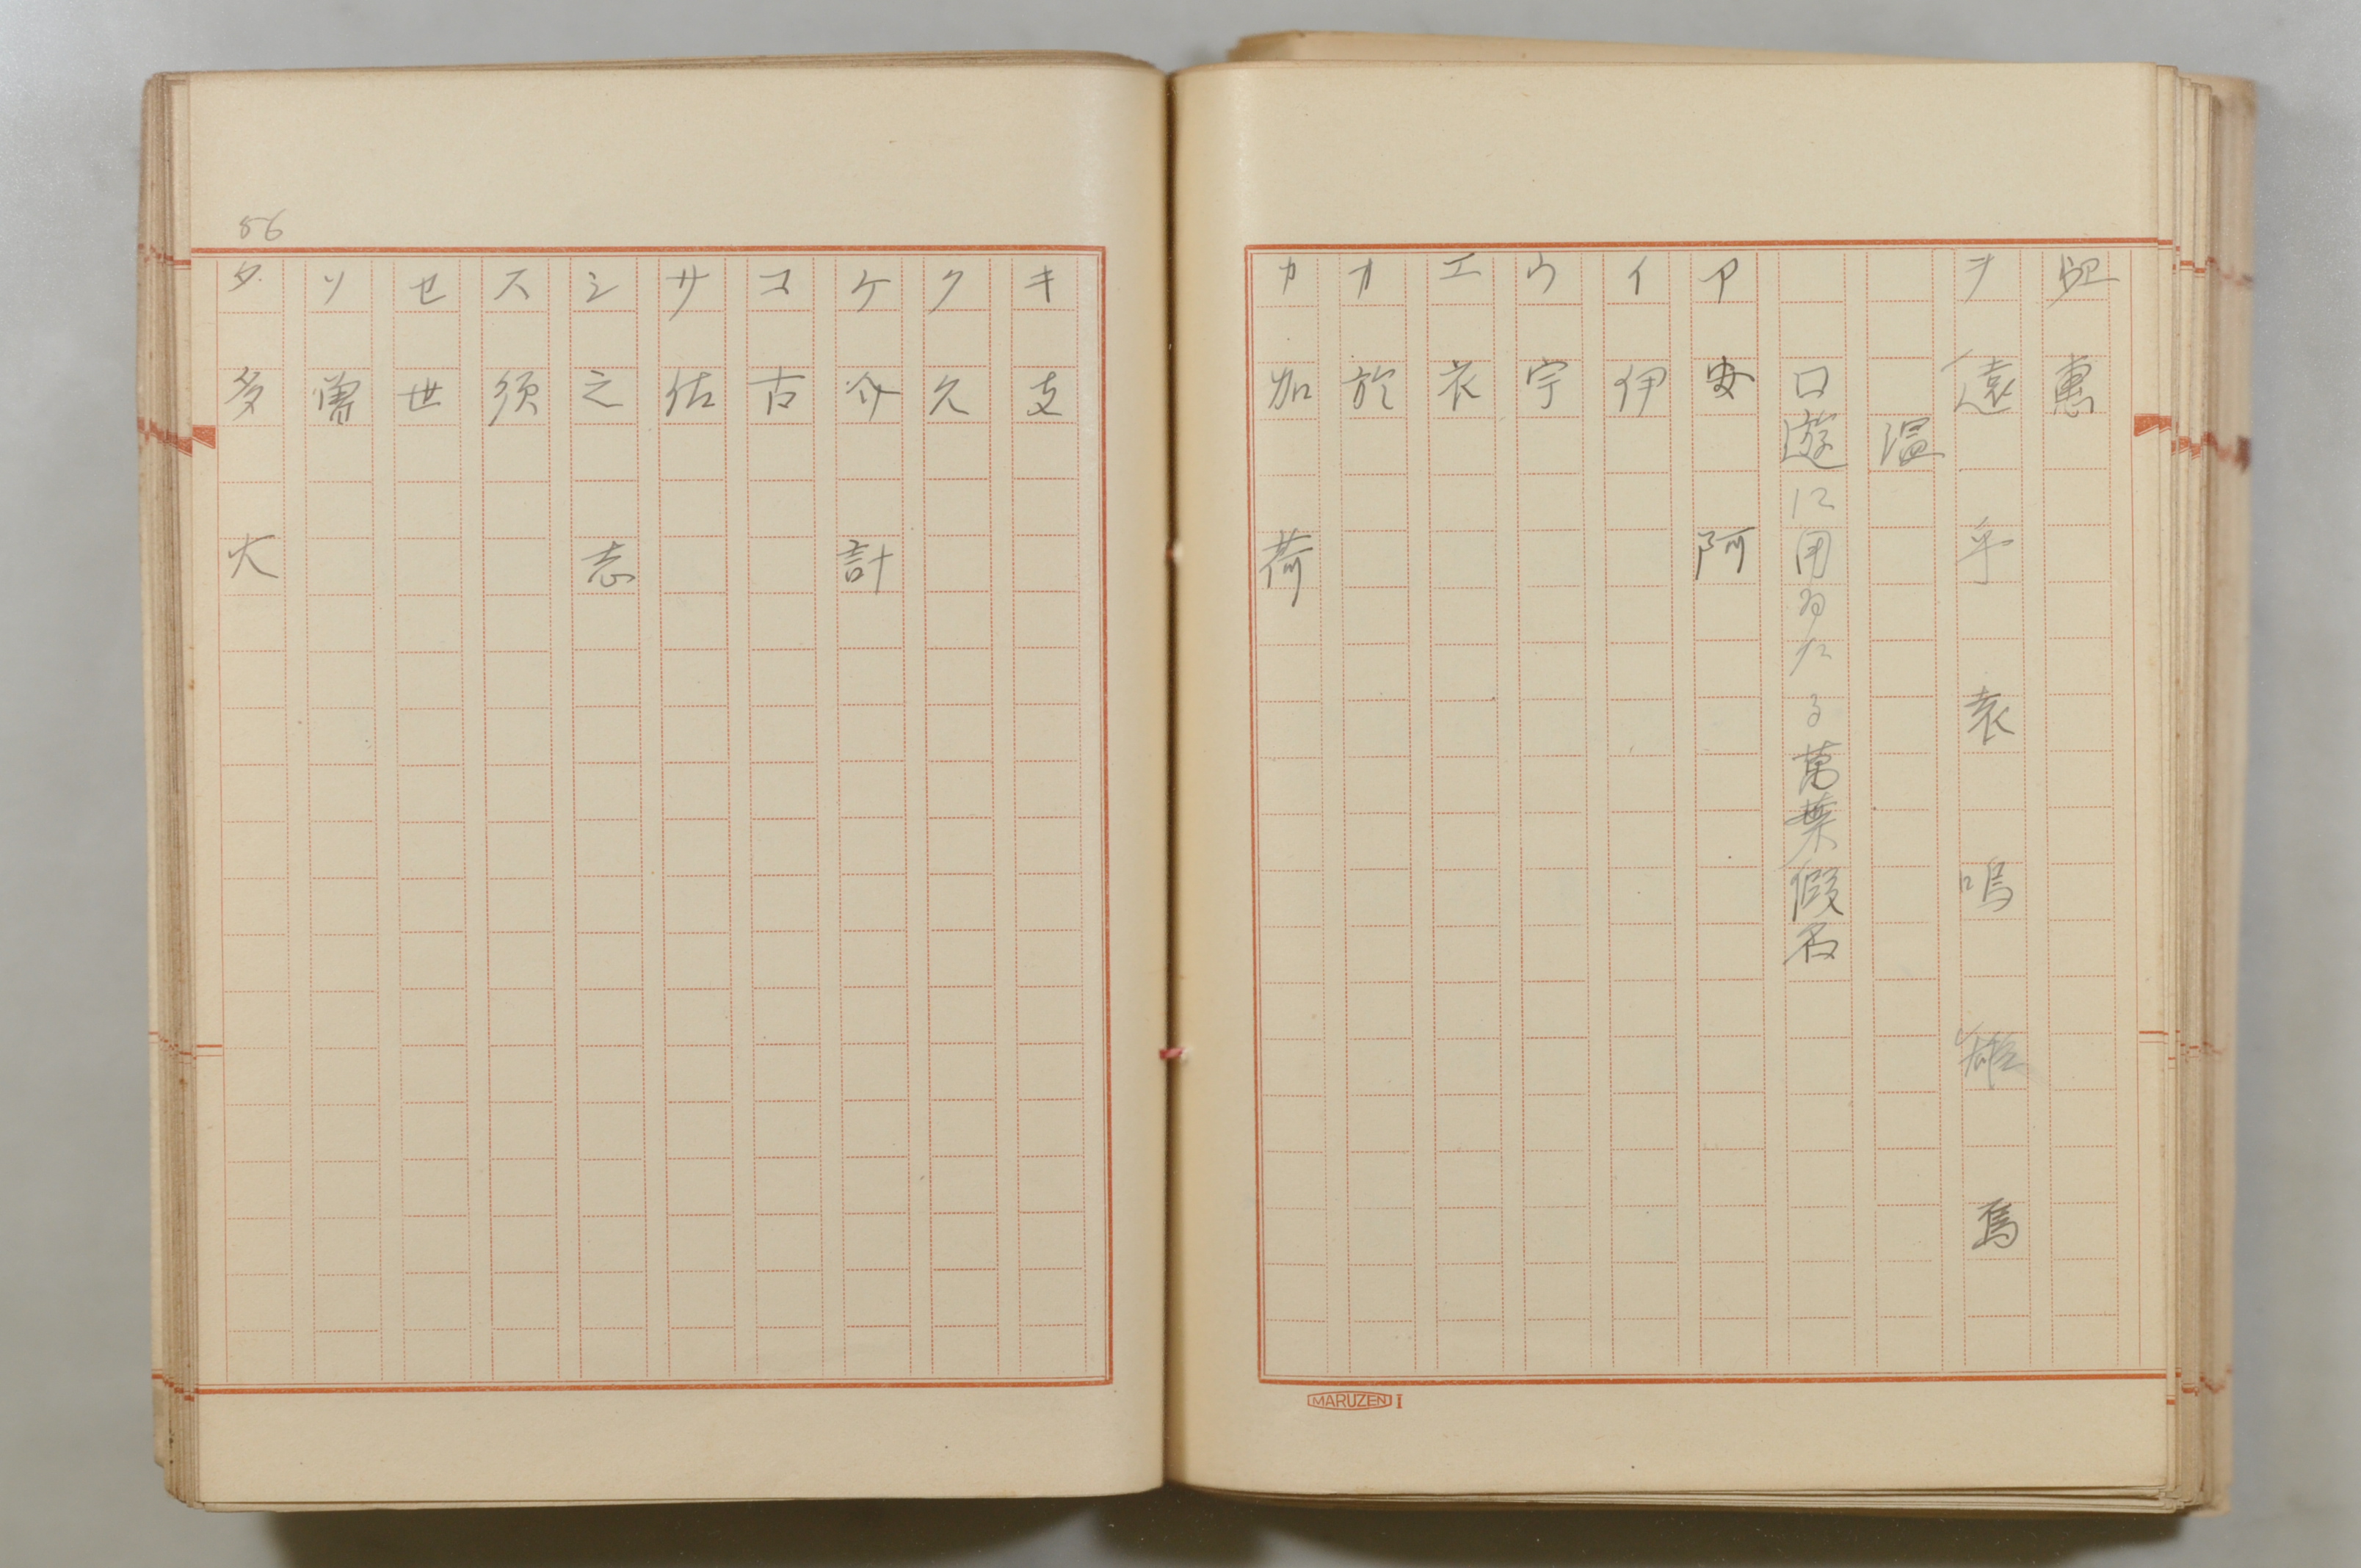 ヱ 惠
ヲ 遠 乎 袁 嗚 雄 焉
温
口遊に用ゐたる萬葉假名
ア 安 阿
イ 伊
ウ 宇
エ 衣
オ 於
カ 加 荷
MARUZEN I
56
キ 支
ク 久
ケ 介 計
コ 古
サ 佐
シ 之 志
ス 須
セ 世
ソ 曽
タ 多 大